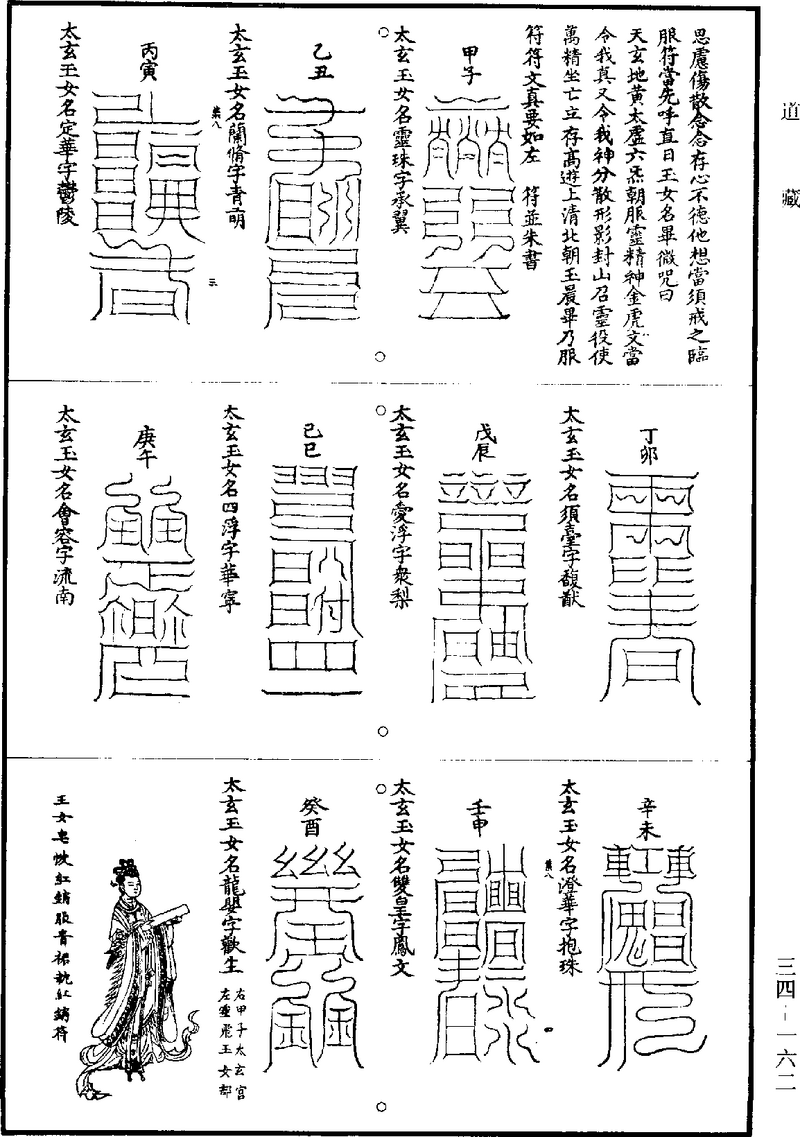 道藏
思慮傷散念念存心不德他想當須戒之臨
服符當先呼直日玉女名畢微咒曰
天玄地黃太虛六炁朝服靈精神金虎文當
令我真又令我神分散形影封山召靈役使
萬精坐亡立存高遊上清北朝玉晨畢乃服
符符文真要如左 符並朱書
甲子
太玄玉女名靈珠字承翼
乙丑
太玄玉女名蘭脩字青萌
丙寅
太玄玉女名定華字鬱陵
三
丁卯
太玄玉女名須臺字馥猷
戊辰
太玄玉女名愛浮字衆梨
己巳
太玄玉女名四浮字華寧
庚午
太玄玉女名會容字流南
辛未
太玄玉女名澄華字抱珠
壬申
太玄玉女名雙皇字鳳文
四
癸酉
太玄玉女名龍嬰字歡生
右甲子太玄宮
左靈飛玉女部
玉女皂帔紅綃服青裙執紅綃符
三四-一六二